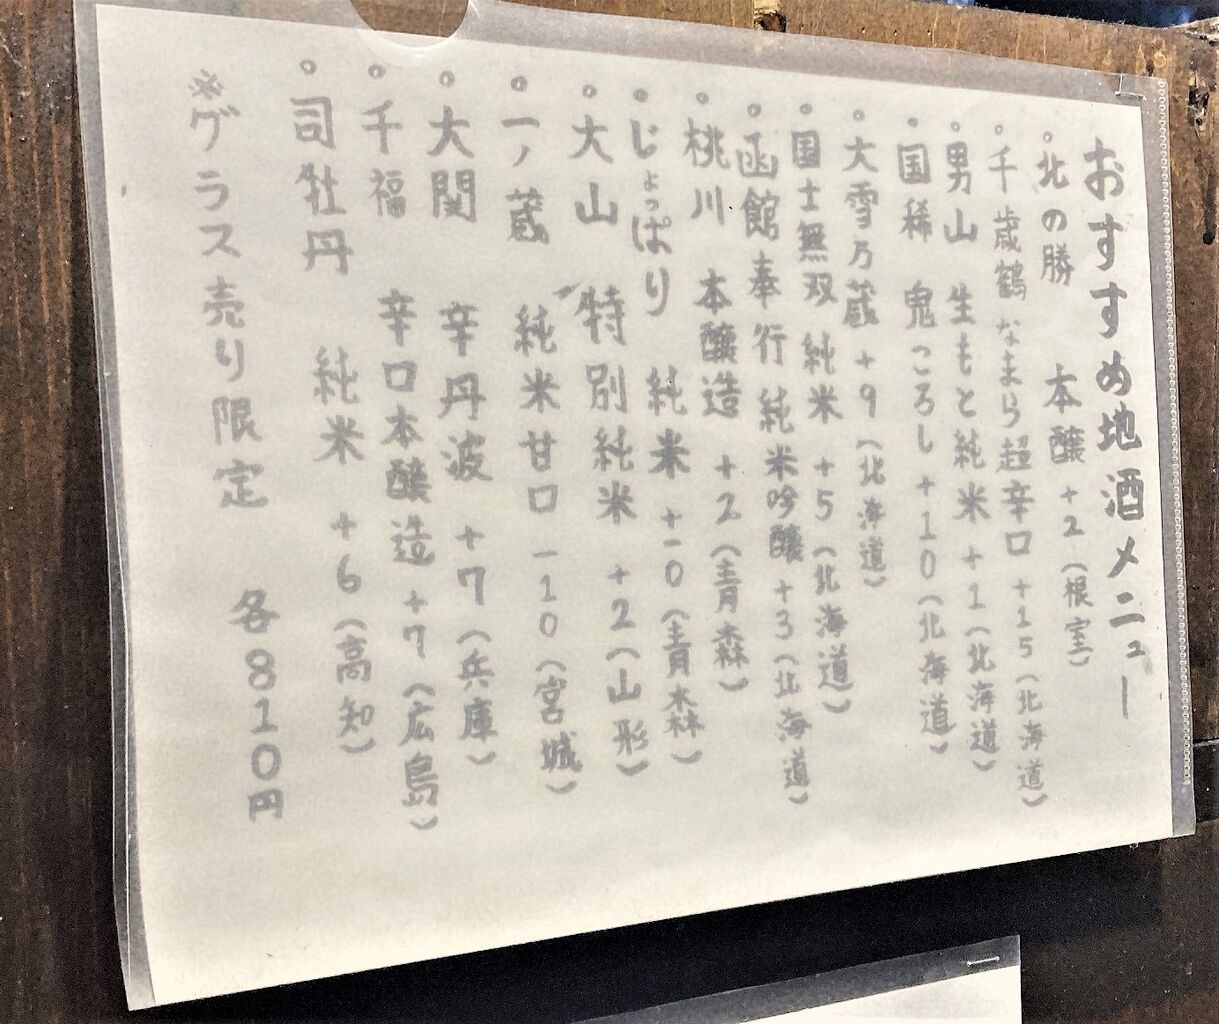 おすすめ地酒メニュー
。北の勝 本醸 +2 (根室)
。千歳鶴 なまら超辛口 +15 (北海道)
。男山 生もと純米 +1 (北海道)
。国稀 鬼ころし +10 (北海道)
。大雪乃蔵 +9 (北海道)
。国士無双 純米 +5 (北海道)
。函館奉行 純米吟醸 +3 (北海道)
。桃川 本醸造 +2 (青森)
。じょっぱり 純米 +-0 (青森)
。大山 特別純米 +2 (山形)
。一ノ蔵 純米甘口 -10 (宮城)
。大関 辛丹波 +7 (兵庫)
。千福 辛口本醸造 +7 (広島)
。司牡丹 純米 +6 (高知)
※グラス売り限定 各810円